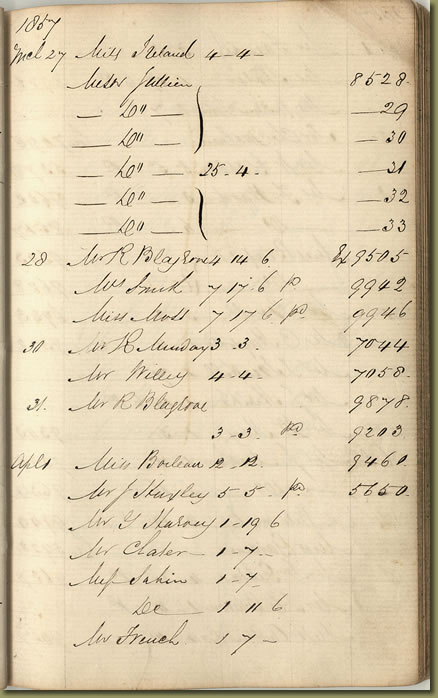 1857
Mch 27 Miss Ireland 4-4-
Messr Jullien 8528
— Do — 29
— Do — 30
— Do — 25-4- 31
— Do — 32
— Do — 33
28 Mr R Blagrove 4 14 6 Ex 9505
Mrs Smith 7 17-6 pd 9942
Miss Moss 7 17 6 pd 9946
30 Mr R Munday 3-3- 7044
Mr Willey 4-4- 7058
31 Mr R Blagrove 9878
3-3- pd 9203
Apl 1 Miss Boileau 12-12- 9460
Mr J Hurley 5-5- pd 5650
Mr G Harvey 1-19 6
Mr Clater 1-7-
1-7-
Do 1 11 6
Mr French 1 7-